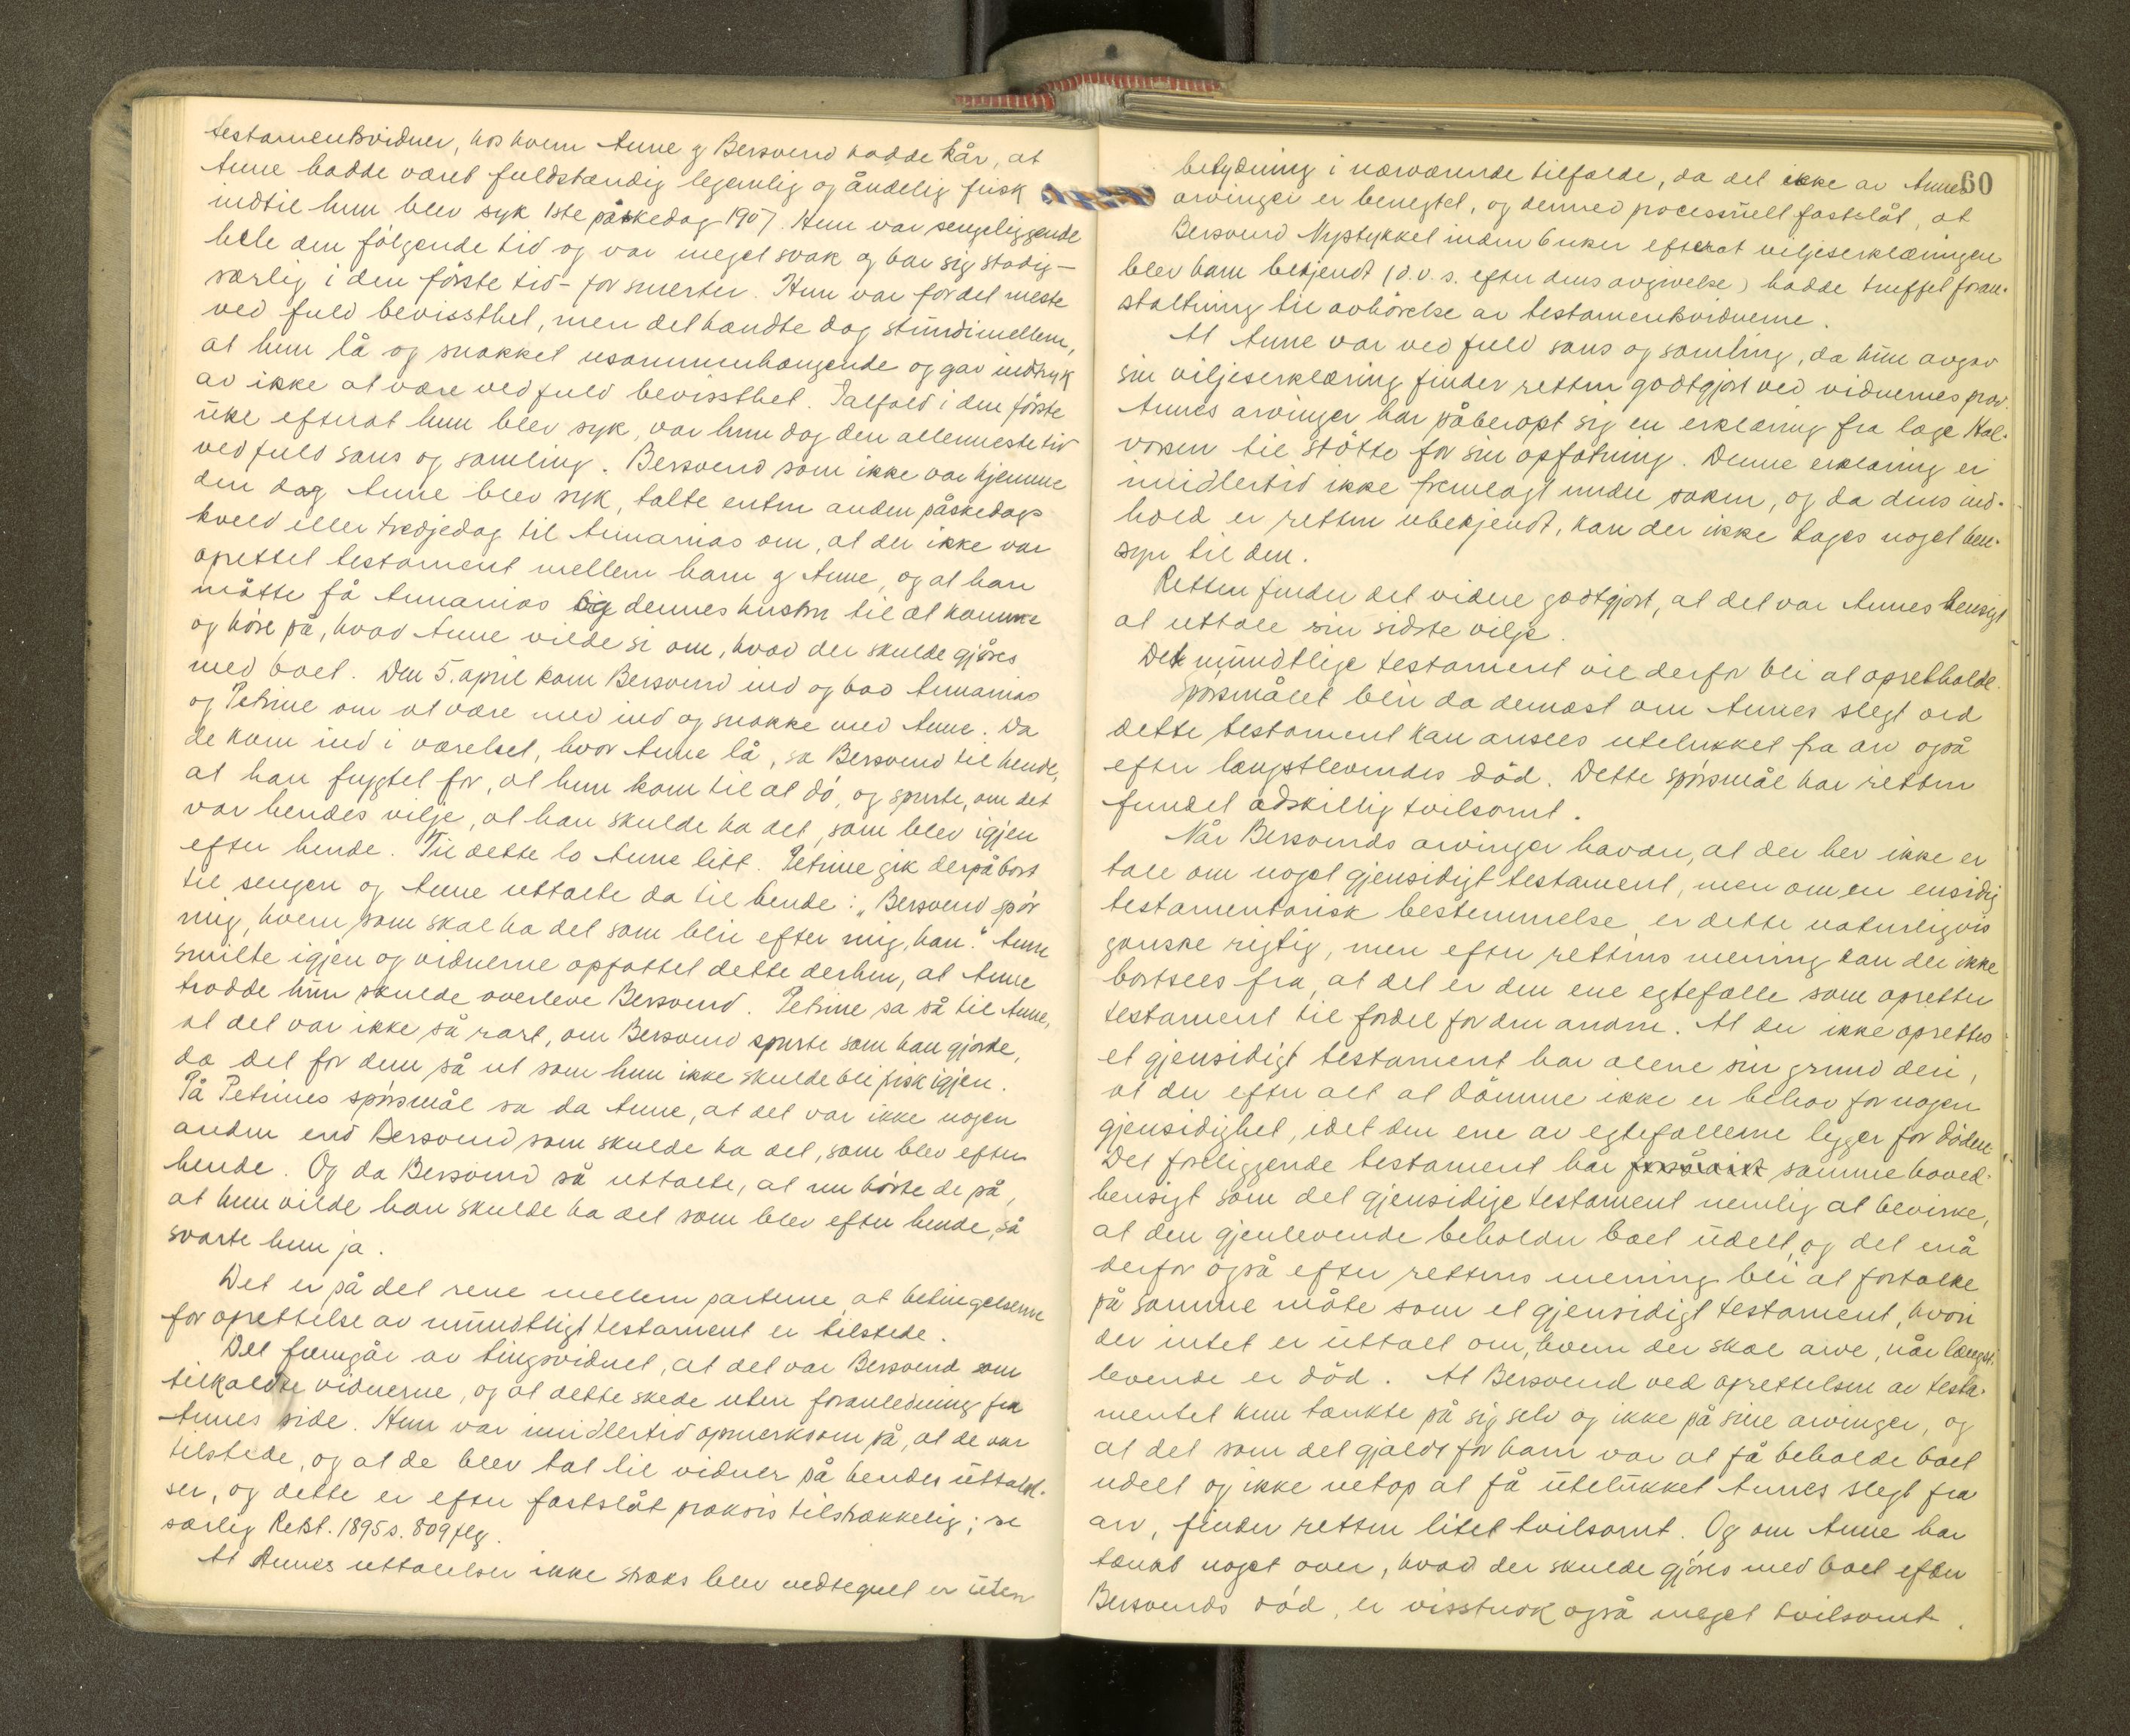 testamentsvidner, hos hvem Anne og Bersvend hadde kår, at
Anne hadde været fuldstændig legemlig og åndelig frisk
indtil hun blev syk 1ste påskedag 1907. Hun var sengeliggende
hele den følgende tid og var meget svak og bar sig stadig –
særlig i den første tid – for smerter. Hun var for det meste
ved fuld bevissthet, men det hændte dog stundimellem,
at hun lå og snakket usammenhængende og gav indtryk
av ikke at være ved fuld bevissthet. Ialfald i den første
uke efterat hun blev syk, var hun dog den allermeste tid
ved fuld sans og samling. Bersvend som ikke var hjemme
den dag Anne blev syk, talte enten anden påskedags
kveld eller tredjedag til Annanias om, at der ikke var
oprettet testament mellem ham og Anne, og at han
måtte få Annanias og dennes hustru til at komme
og høre på, hvad Anne vilde si om, hvad der skulde gjøres
med boet. Den 5. april kom Bersvend ind og bad Annanias
og Petrine om at være med ind og snakke med Anne. Da
de kom ind i værelset, hvor Anne lå, sa Bersvend til hende,
at han frygtet for, at hun kom til at dø, og spurte, om det
var hendes vilje, at han skulde ha det, som blev igjen
efter hende. Til dette lo Anne litt. Petrine gik derpå bort
til sengen og Anne uttalte da til hende: „Bersvend spør
mig, hvem som skal ha det som blir efter mig, han." Anne
smilte igjen og vidnerne opfattet dette derhen, at Anne
trodde hun skulde overleve Bersvend. Petrine sa så til Anne,
at det var ikke så rart, om Bersvend spurte som han gjorde,
da det for dem så ut som hun ikke skulde bli frisk igjen.
På Petrines spørsmål sa da Anne, at det var ikke nogen
anden end Bersvend som skulde ha det, som blev efter
hende. Og da Bersvend så uttalte, at nu hørte de på,
at hun vilde han skulde ha det som blev efter hende, så
svarte hun ja.
Det er på det rene mellem parterne at betingelserne
for oprettelse av mundtligt testament er tilstede.
Det fremgår av tingsvidnet, at det var Bersvend som
tilkaldte vidnerne, og at dette skede uten foranledning fra
Annes side. Hun var imidlertid opmerksom på, at de var
tilstede, og at de blev tat til vidner på hendes uttalel-
ser, og dette er efter fastslåt praksis tilstrækkelig; se
særlig Retst. 1895 s. 809 flg.
At Annes uttalelser ikke straks blev nedtegnet er uten
60
betydning i nærværende tilfælde, da det ikke av Annes
arvinger er benegtet, og dermed processuelt fastslåt, at
Bersvend Nystykket inden 6 uker efterat viljeserklæringen
blev ham bekjendt (d.v.s. efter dens avgivelse) hadde truffet foran-
staltning til avhørelse av testamentsvidnerne.
At Anne var ved fuld sans og samling, da hun avgav
sin viljeserklæring finder retten godtgjort ved vidnernes prov.
Annes arvinger har påberopt sig en erklæring fra læge Hal-
vorsen til støtte for sin opfatning. Denne erklæring er
imidlertid ikke fremlagt under saken, og da dens ind-
hold er retten ubekjendt, kan der ikke tages noget hen-
syn til den.
Retten finder det videre godtgjort, at det var Annes hensigt
at uttale sin sidste vilje.
Det mundtlige testament vil derfor bli at opretholde.
Spørsmålet blir da dernæst om Annes slegt ved
dette testament kan ansees utelukket fra arv også
efter længstlevendes død. Dette spørsmål har retten
fundet adskillig tvilsomt.
Når Bersvends arvinger hævder, at der her ikke er
tale om noget gjensidigt testament, men om en ensidig
testamentarisk bestemmelse er dette naturligvis
ganske rigtig, men efter rettens mening kan der ikke
bortsees fra, at det er den ene egtefælle som opretter
testament til fordel for den anden. At der ikke oprettes
et gjensidigt testament har alene sin grund deri,
at der efter alt at dømme ikke er behov for nogen
gjensidighet, idet den ene av egtefællerne ligger for døden.
Det foreliggende testament har samme hoved-
hensigt som det gjensidige testament nemlig at bevirke,
at den gjenlevende beholder boet udelt, og det må
derfor også efter rettens mening bli at fortolke
på samme måte som et gjensidigt testament, hvori
der intet er uttalt om, hvem der skal arve, når længst-
levende er død. At Bersvend ved oprettelsen av testa-
mentet kun tænkte på sig selv og ikke på sine arvinger, og
at det som det gjaldt for ham var at få beholde boet
udelt og ikke netop at få utelukket Annes slegt fra
arv, finder retten litet tvilsomt. Og om Anne har
tænkt noget over, hvad der skulde gjøres med boet efter
Bersvends død, er visstnok også meget tvilsomt.